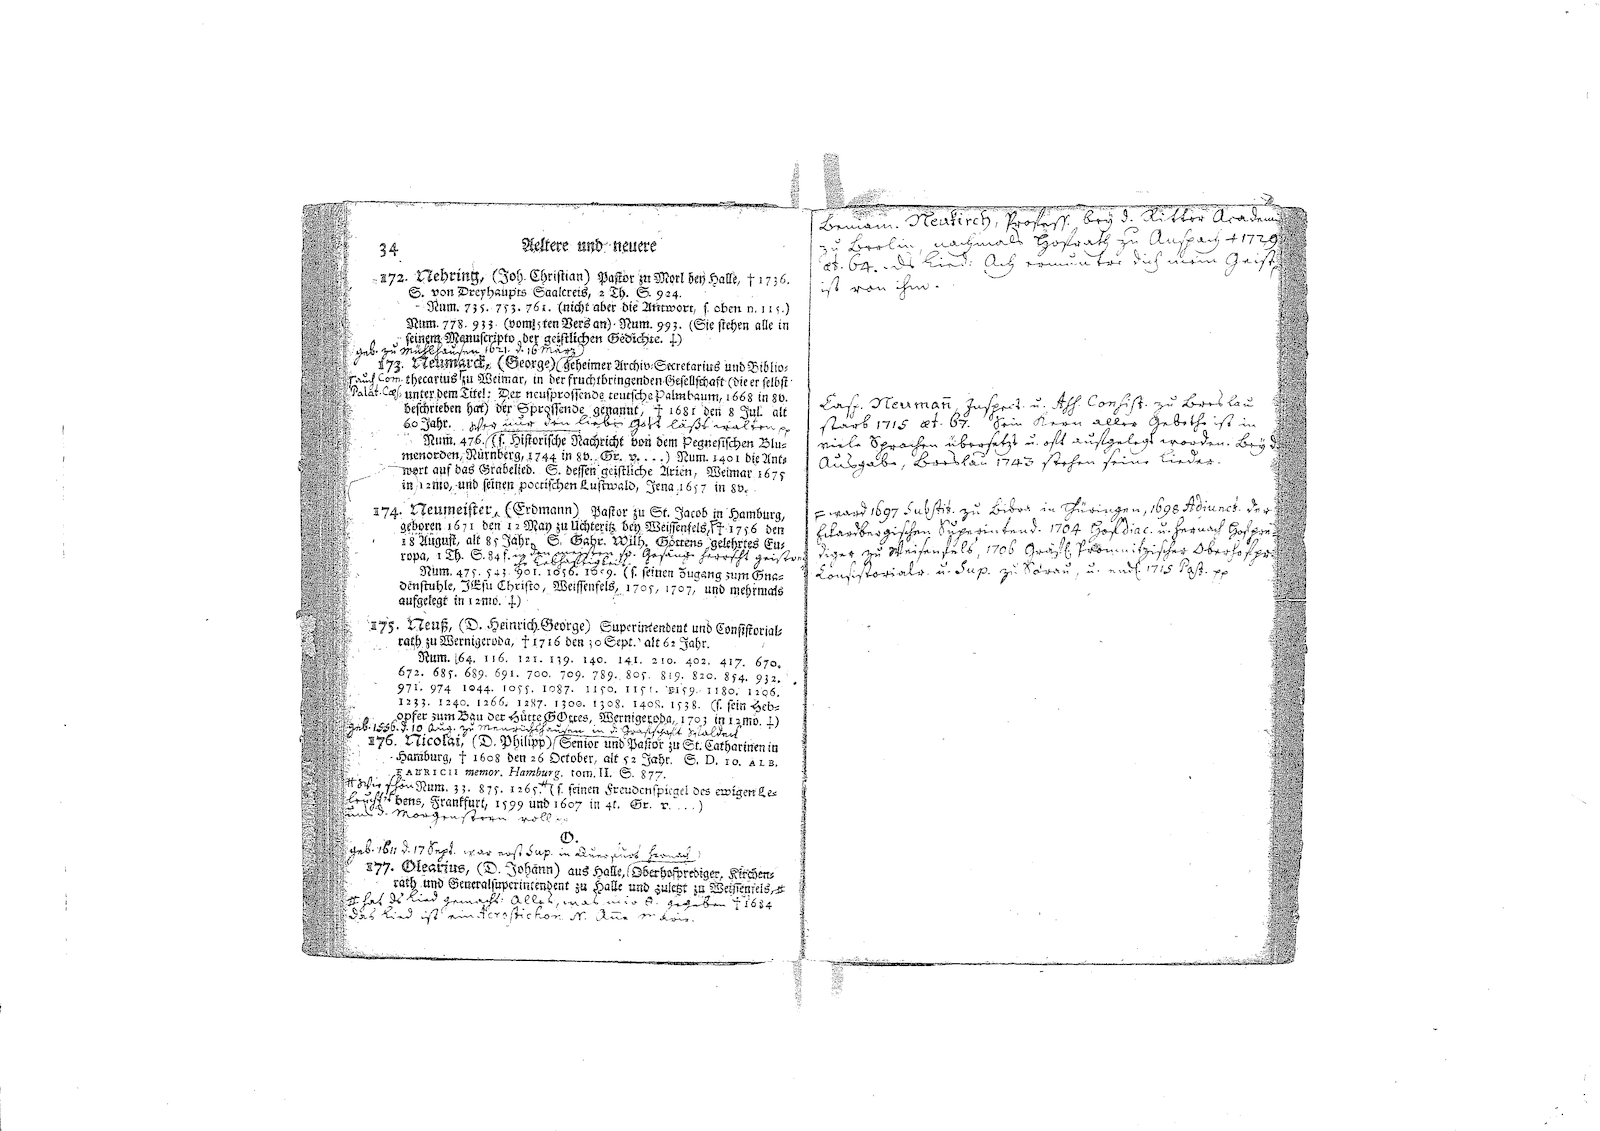 34 Aeltere und neuere
172. Nehring, (Joh. Christian) Pastor zu Morl bey Halle, † 1736.
S. von Dreyhaupts Saalcreis, 2 Th. S. 924.
Num. 735. 753. 761. (nicht aber die Antwort, s. oben n. 115.)
Num. 778. 933. (vom 5ten Vers an) Num. 993. (Sie stehen alle in
seinem Manuscripto der geistlichen Gedichte. ‡)
geb. zu Mühlhausen 1621. d. 16 März
173. Neumarck, (George) geheimer Archiv-Secretarius und Biblio-
auch Com. thecarius zu Weimar, in der fruchtbringenden Gesellschaft (die er selbst
Palat. Cæs. unter dem Titel: Der neusprossende teutsche Palmbaum, 1668 in 8v.
beschrieben hat) der Sprossende genannt, † 1681 den 8 Jul. alt
60 Jahr. Wer nur den lieben Gott läßt walten
Num. 476. (s. Historische Nachricht von dem Pegnesischen Blu-
menorden, Nürnberg, 1744 in 8v. Gr. v. . . .) Num. 1401 die Ant-
wort auf das Grabelied. S. dessen geistliche Arien, Weimar 1675
in 12mo, und seinen poetischen Lustwald, Jena 1657 in 8v.
174. Neumeister, (Erdmann) Pastor zu St. Jacob in Hamburg,
geboren 1671 den 12 May zu Uchteritz bey Weissenfels, † 1756 den
18 August, alt 85 Jahr. S. Gabr. Wilh. Göttens gelehrtes Eu-
ropa, 1 Th. S. 84 f. Gesänge herrscht
Num. 475. 543. 901. 1056. 1659. (s. seinen Zugang zum Gna-
denstuhle, JEsu Christo, Weissenfels, 1705, 1707, und mehrmals
aufgelegt in 12mo. ‡)
175. Neuß, (D. Heinrich George) Superintendent und Consistorial-
rath zu Wernigeroda, † 1716 den 30 Sept. alt 62 Jahr.
Num. 64. 116. 121. 139. 140. 141. 210. 402. 417. 670.
672. 685. 689. 691. 700. 709. 789. 805. 819. 820. 854. 932.
971. 974 1044. 1055. 1087. 1150. 1151. 1159. 1180. 1206.
1233. 1240. 1266. 1287. 1300. 1308. 1408. 1538. (s. sein Heb-
opfer zum Bau der Hütte GOttes, Wernigeroda, 1703 in 12mo. ‡)
geb. 1556. d. 10 Aug. zu Mengershausen in d. Grafschaft Waldeck
176. Nicolai, (D. Philipp) Senior und Pastor zu St. Catharinen in
Hamburg, † 1608 den 26 October, alt 52 Jahr. S. D. IO. ALB.
FABRICII memor. Hamburg. tom. II. S. 877.
Wie schön Num. 33. 875. 1265. (s. seinen Freudenspiegel des ewigen Le-
leucht bens, Frankfurt, 1599 und 1607 in 4t. Gr. v. . . .)
uns d. Morgenstern voll
O.
geb. 1611 d. 17 Sept. war erst Sup. in Querfurt hernach
177. Olearius, (D. Johann) aus Halle, Oberhofprediger, Kirchen-
rath und Generalsuperintendent zu Halle und zuletzt zu Weissenfels,
hat ds Lied gemacht: Alles, was mir G. gegeben † 1684
das Lied ist ein Acrostichon
Beniam. Neukirch, Profess. bey d. Ritter Academ
zu Berlin, nachmals Hofrath zu Anspach † 1729
æt. 64. ds Lied: Ach ermuntre dich mein Geist
ist von ihm.
Casp. Neumañ, Inspect. u. Ass. Consist. zu Breslau
starb 1715 æt. 67. Sein Kern aller Gebethe ist in
viele Sprachen übersetzt u. oft aufgelegt worden. Bey d.
Ausgabe, Breslau 1743 stehen seine Lieder.
ward 1697 Substit. zu Bibra in Thüringen, 1698 Adiunct. der
Ekardbergischen Superintend. 1704 Hofdiac. u. hernach Hofpre-
diger zu Weisenfels, 1706 Gräfl. Promnitzischer Oberhofpr.
Consistorialr. u. Sup. zu Sorau, u. endl. 1715 Past. pp